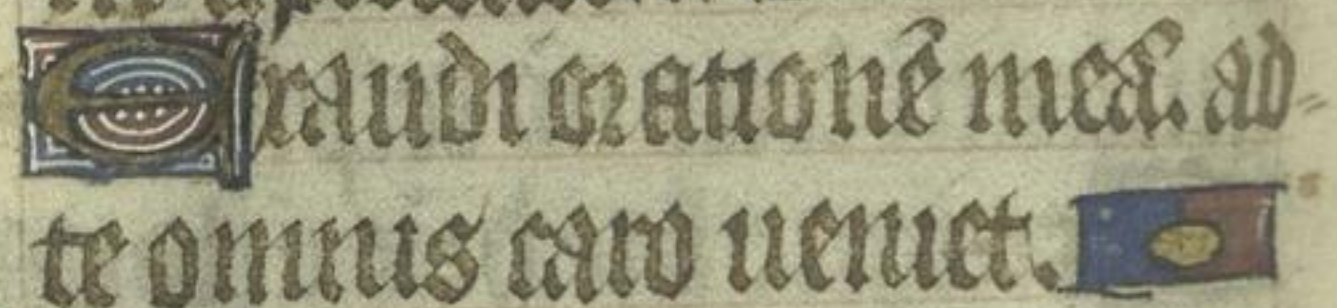 Exaudi orationē meā. ad
te omnis caro ueniet.